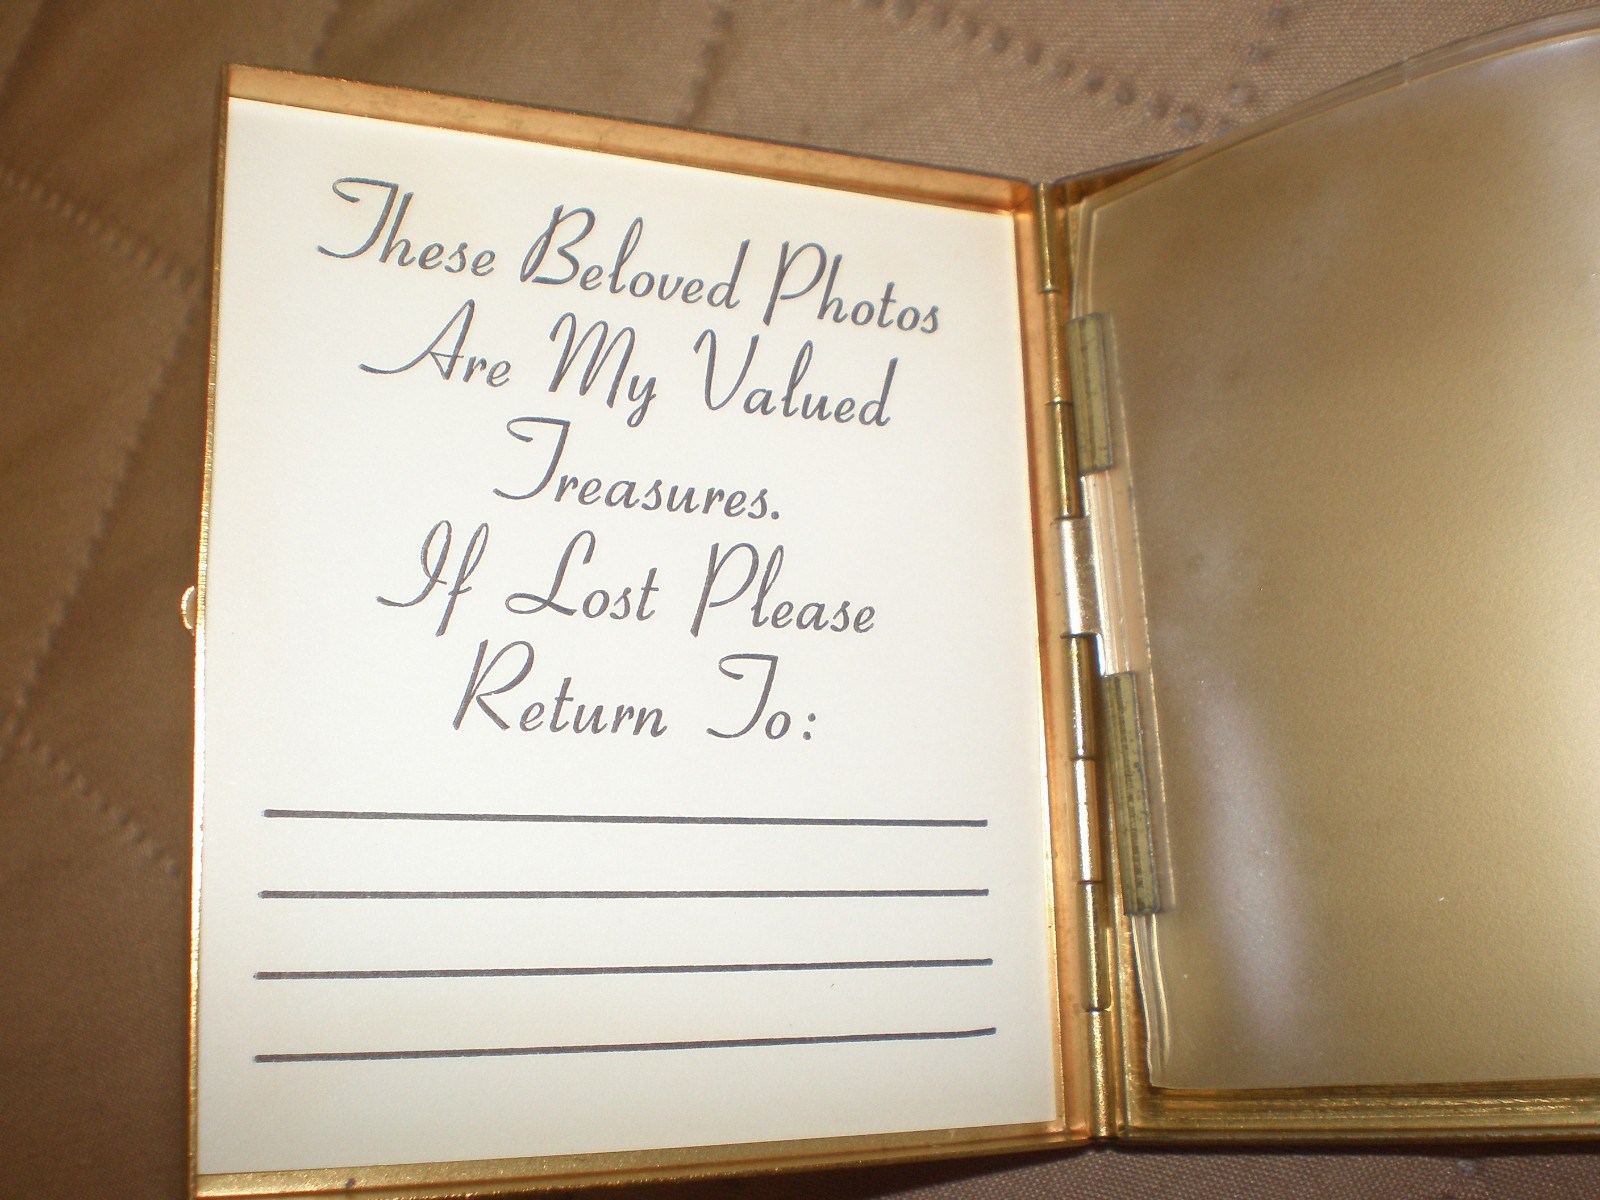 These Beloved Photos
Are My Valued
Treasures.
If Lost Please
Return To: